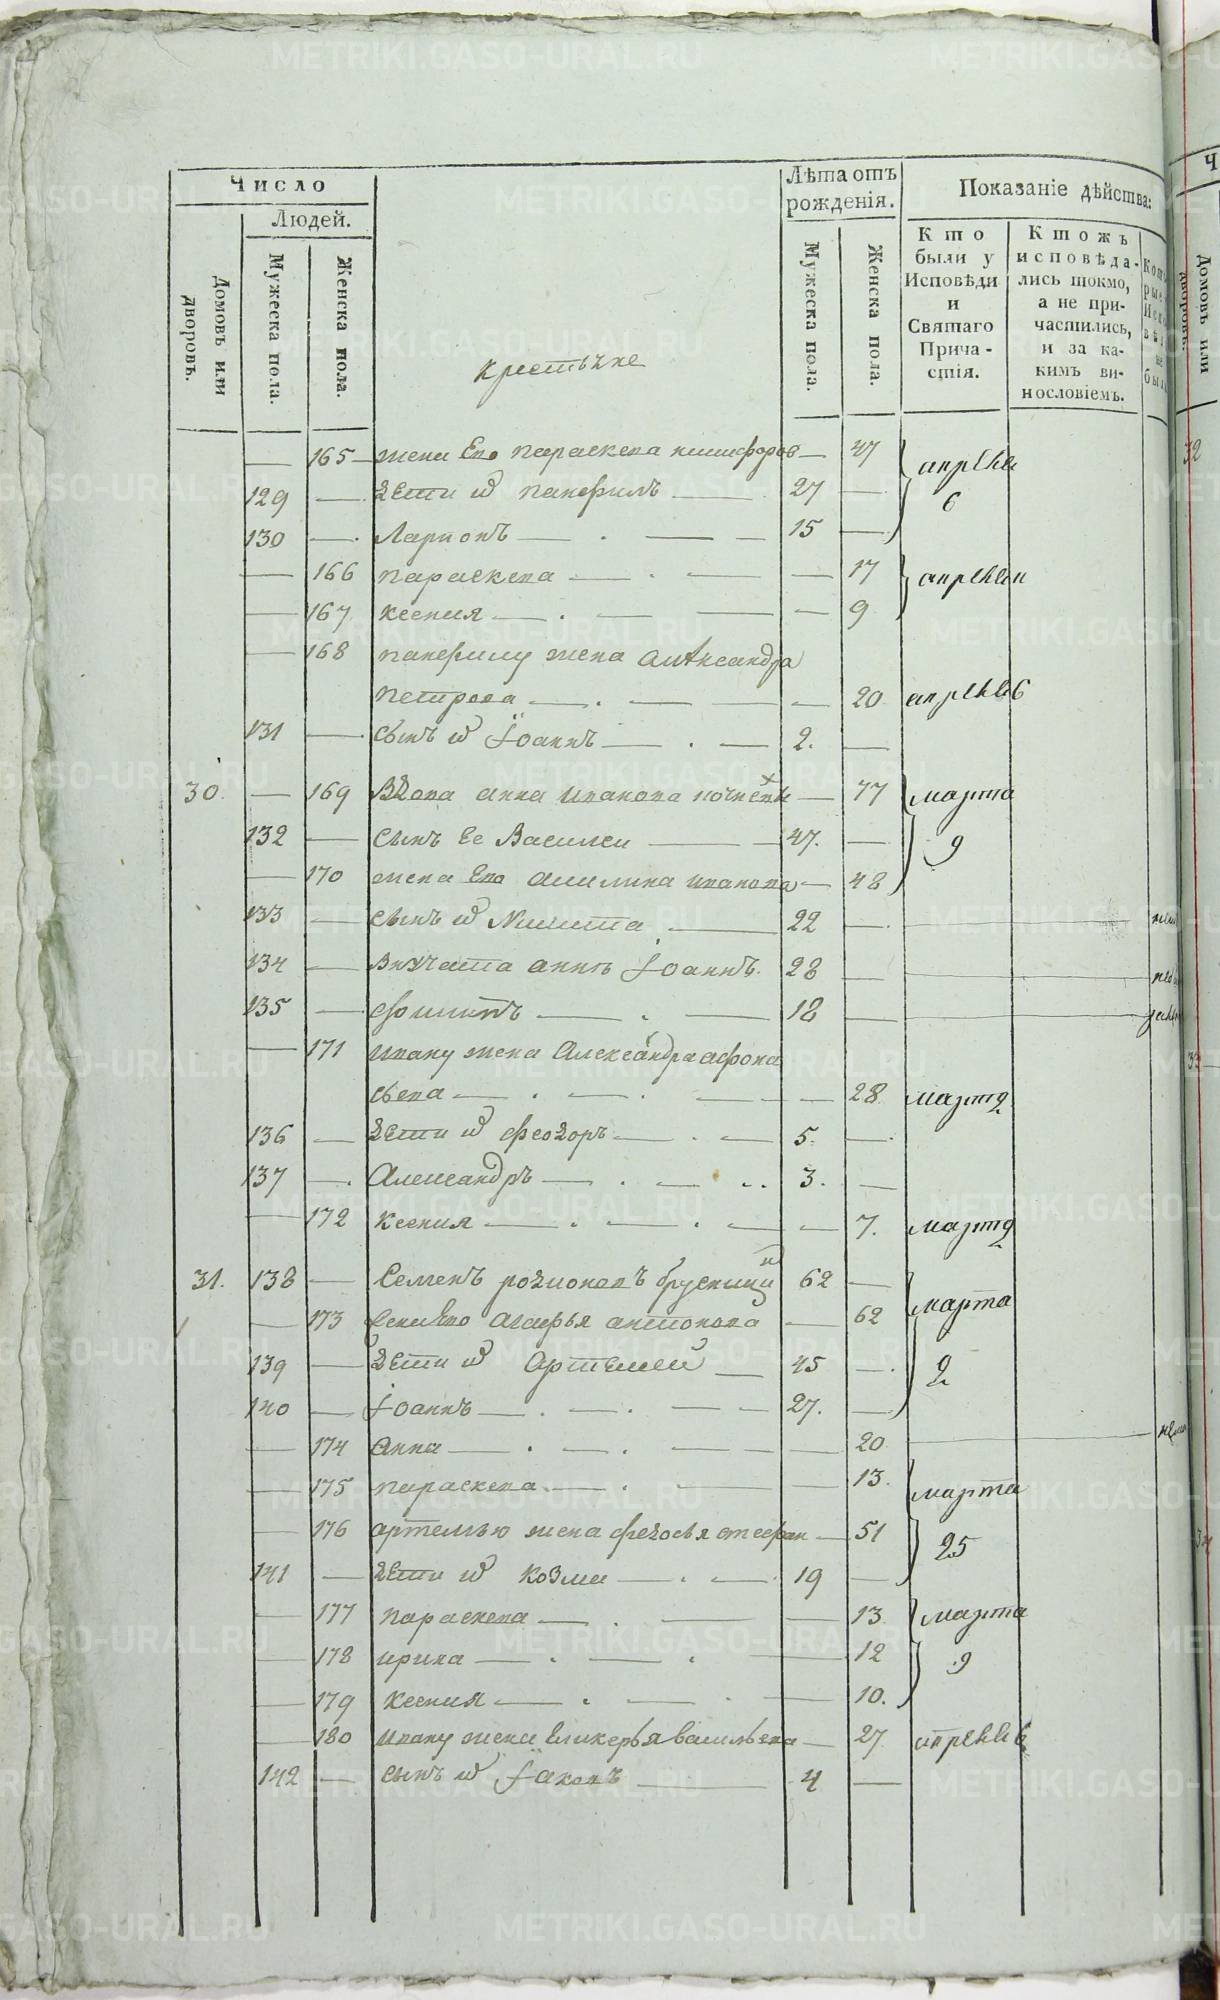 Число
Людей.
Домовъ или дворовъ.
Мужеска пола.
Женска пола.
Лѣта отъ рожденія.
Мужеска пола.
Женска пола.
Показаніе дѣйства:
Кто были у Исповѣди и Святаго Причастія.
Ктожъ исповѣдались токмо, а не причастились, и за какимъ винословіемъ.
крестьяне
165 жена Его параскева никифоров 47 апрѣля
129 дети их панфилъ 27 6
130 Ларионъ 15
166 параскева 17 апрѣля
167 ксения 9
168 панфилу жена Александра
петрова 20 апрѣля 6
131 сынъ их Iоаннъ 2.
30. 169 Вдова анна иванова 77 марта
132 сынъ Ее Василеи 47. 9
170 жена Его акилина иванова 48
133 сынъ их Никита 22
134 внучата анне Iоаннъ 28
135 филипъ 18
171 ивану жена Александра афона
сьева 28 марта 9
136 дети их феодоръ 5.
137 Александръ 3.
172 ксения 7. марта 9
31. 138 Семенъ родионовъ брусницы 62
173 жена Его агафья антонова 62 марта
139 дети их Артемеи 45 9
140 Iоаннъ 27.
174 Анна 20
175 параскева 13. марта
176 артемью жена федосья стефан 51 25
141 дети их козма 19
177 параскева 13 марта
178 ирина 12 9
179 ксения 10.
180 ивану жена гликерья васильева 27 апрѣля 6
142 сынъ их Iаковъ 4
METRIKI.GASO-URAL.RU